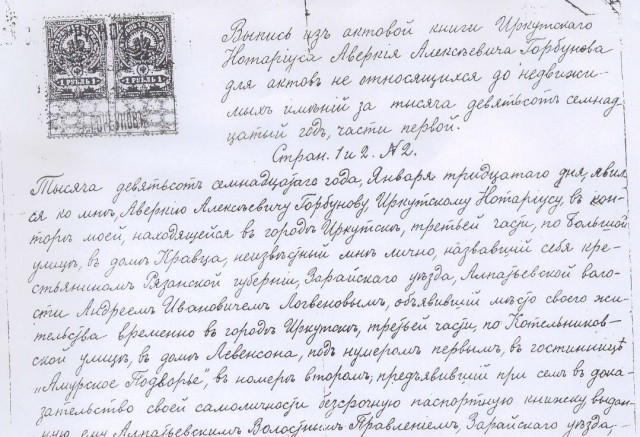 1 РУБЛЬ 1
1 РУБЛЬ 1
Выпись изъ актовой книги Иркутскаго
Нотаріуса Аверкія Алексѣевича Горбунова
для актовъ не относящихся до недвижи-
мыхъ имѣній за тысяча девятьсотъ семнад
цатый годъ, части первой.
Стран. 1 и 2. №2.
Тысяча девятьсотъ семнадцатаго года, Января тридцатаго дня, явил
ся ко мнѣ, Аверкію Алексѣевичу Горбунову Иркутскому Нотаріусу, въ кон
торѣ моей, находящейся въ городѣ Иркутскѣ, третьей части, по Большой
улицѣ, въ домѣ Кравца, неизвѣстный мнѣ лично, назвавшій себя кре-
стьяниномъ Рязанской губерніи, Зарайскаго уѣзда, Алпатьевской воло-
сти Андреемъ Ивановичемъ Логвеновымъ, объявившій мѣсто своего жи-
тельства временно въ городѣ Иркутскѣ, третьей части, по Котельников-
ской улицѣ, въ домѣ Левенсона, подъ нумеромъ первымъ, въ гостинницѣ
„Амурское Подворье", въ номерѣ второмъ, предъявившій при семъ въ дока-
зательство своей самоличности безсрочную паспортную книжку выдан-
ную ему Алпатьевскимъ Волостнымъ Правленіемъ, Зарайскаго уѣзда,-